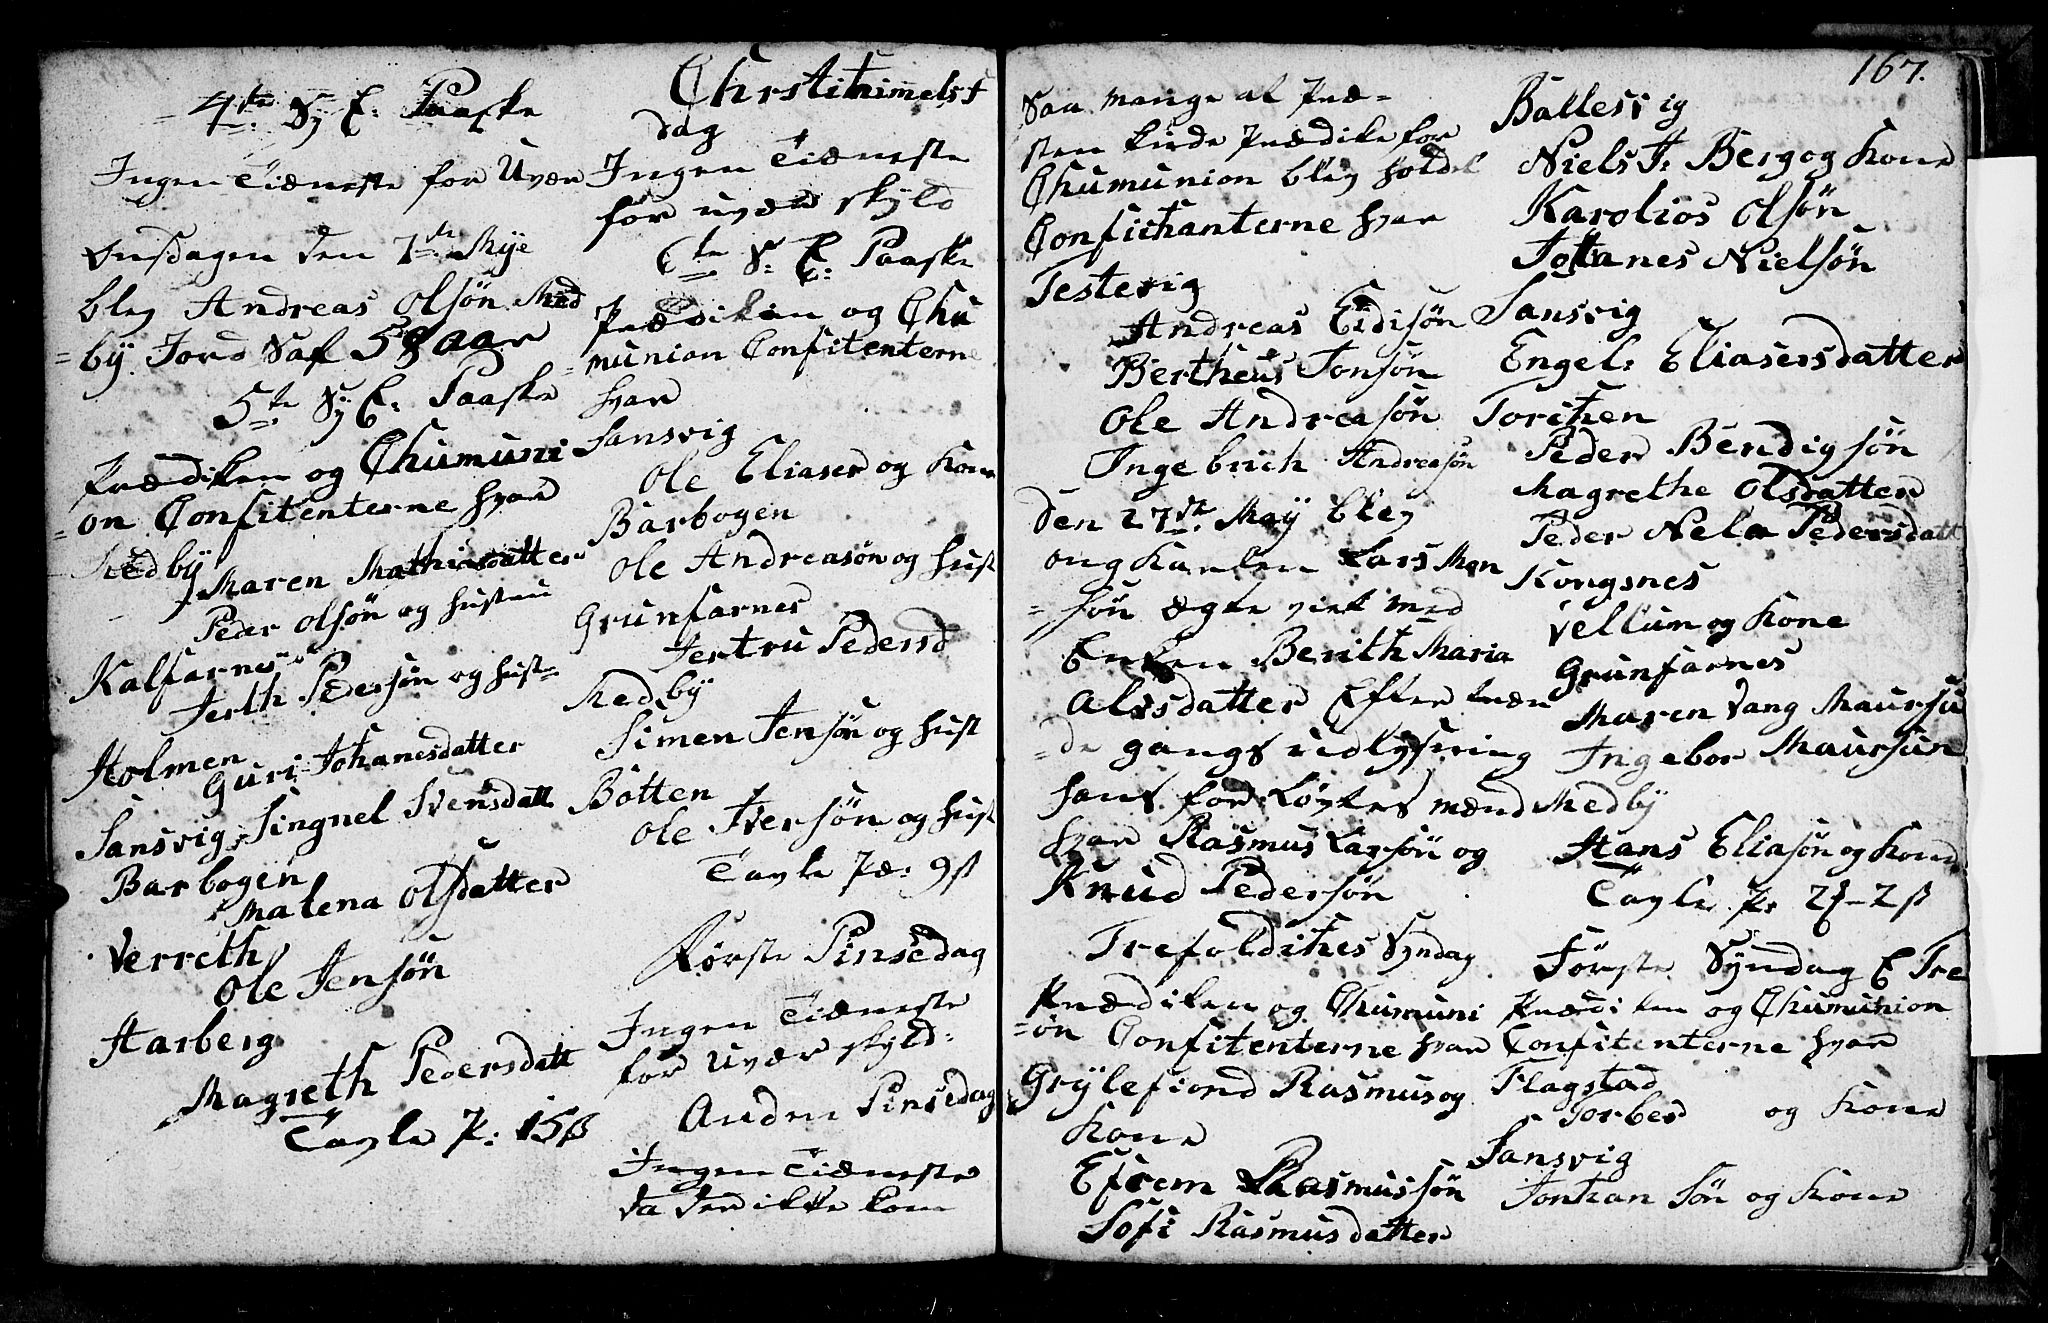 4te S: E: Paaske
Ingen Tiæneste for Uvær
Onsdagen den 7de Mÿe
blev Andreas Olsøn Med
= by Jord Sat 58 aar
5te S: E: Paaske
Prædiken og Chumuni
= on Confitenterne hvar
Medbÿ
Maren Mathiasdatter
Peder Olsøn og hustru
Kalfarnes
Jerth Pedersøn og hust=
Holmen
Guri Johanesdatter
Sansvig Singnel Svensdatt
Barbogen
Malena Olsdatter
Verreth
Ole Jensøn
Aarberg
Magreth Pedersdatt
Tavle P: 15 ß
Chrstihimels f
dag
Ingen Tiæneste
for uvær skyld
6te S: E: Paaske
Prædiken og Chu
= munion Confitenterne
hvar
Sansvig
Ole Eliaser og Kone
Barbogen
Ole Andreasøn og hust
Grunfarnes
Jertru Pedersd
Medby
Simen Jensøn og hust
Botten
Ole Iversøn og hust
Tavle Pæ: 9 ß
Første Pinsedag
Ingen Tiæneste
for Uvær skyld:
Anden Pinsedag
Ingen Tiæneste
da der ikke kom
167.
Saa mange at Præ=
sten kunde Prædike for
Chumunion blev holdet
Confichanterne hvar
Testevig
Andreas Eidisøn
Bertheus Jonsøn
Ole Andreasøn
Ingebrich Andreasøn
den 27de Maÿ blev
ongkarlen Lars Mon
= søn ægte viet med
Enken Berith Maria
Alsdatter Efter træn
= de gangs udlysning
hans for Løvtes mænd
hvar Rasmus Larsøn og
Knud Pedersøn
Trefoldithes Syndag
Prædiken og Chumuni
= on Confitenterne hvar
Grÿlefiord Rasmus og
Kone
Efrem Rasmussøn
Sofi Rasmusdatter
Ballesvig
Niels J: Berg og Kone
Karolios Olsøn
Johanes Nielsøn
Sansvig
Engel: Eliasersdatter
Torithen
Peder Bendigsøn
Magrethe Olsdatter
Peder Nela Pedersdatt
Kongsnes
Vellum og Kone
Grunfarnes
Maren Vang Maursu
Ingebor Maursun
Medbÿ
Hans Eliasøn og Kone
Tavle P: 2 - 2 ß
Første Syndag E Tre
Prædiken og Chumunion
Confitenterne hvar
Flagstad
Torber og Kone
Sansvig
Jonhan Søn og Kone